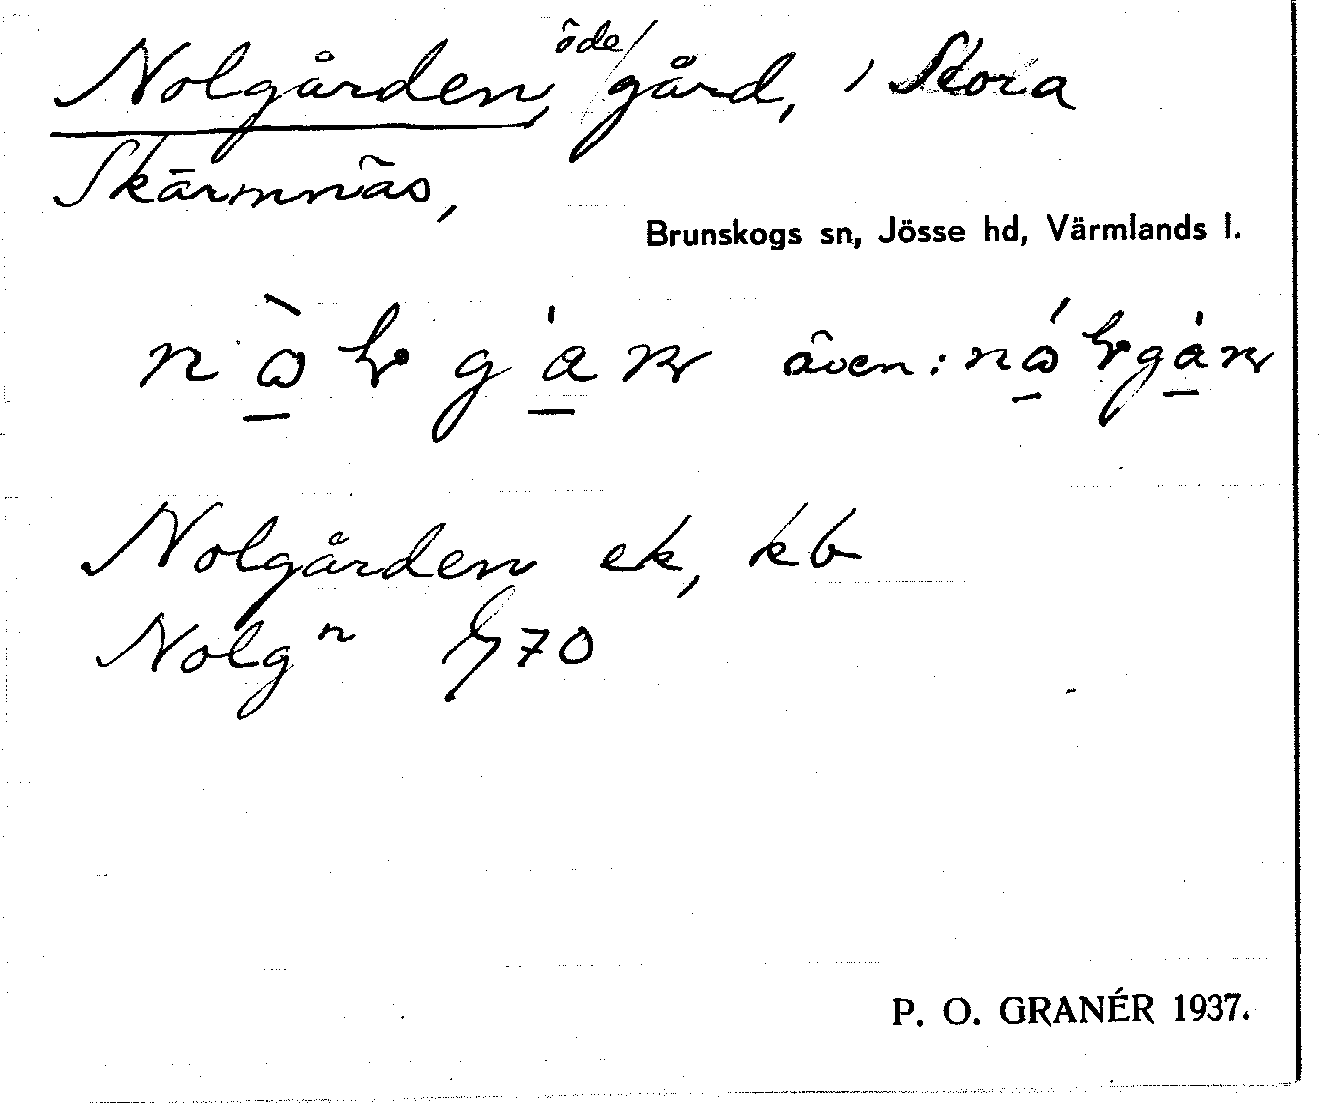 Nolgården, öde/gård, i Stora
Skärmnäs,
Brunskogs sn, Jösse hd, Värmlands l.
även:
Nolgården ek, kb
Nolgⁿ 70
P. O. GRANÉR 1937.